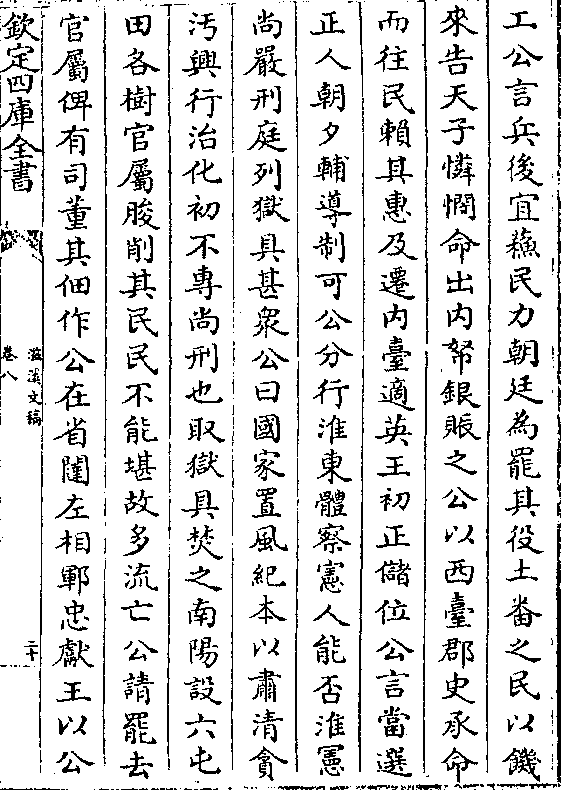 工公言兵後宜蘓民力朝廷為罷其役土番之民以饑
來告天子憐憫命出内帑銀賑之公以西臺郡史承命
而往民賴其惠及遷内臺適英王初正儲位公言當選
正人朝夕輔導制可公分行淮東體察憲人能否淮憲
尚嚴刑庭列獄具甚衆公曰國家置風紀本以肅清貪
汚興行治化初不專尚刑也取獄具焚之南陽設六屯
田各樹官屬朘削其民民不能堪故多流亡公請罷去
官屬俾有司董其佃作公在省闥左相鄆忠獻王以公
欽定四庫全書
滋溪文稿
卷八
二十